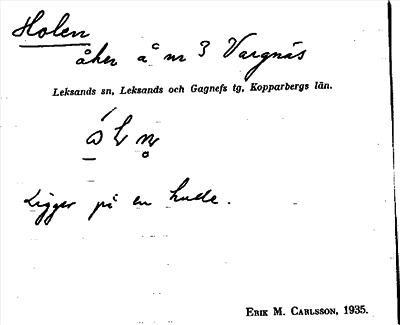 Holen
åker å nr 3 Vargnäs
Leksands sn, Leksands och Gagnefs tg, Kopparbergs län.
Ligger på en hude.
ERIK M. CARLSSON, 1935.